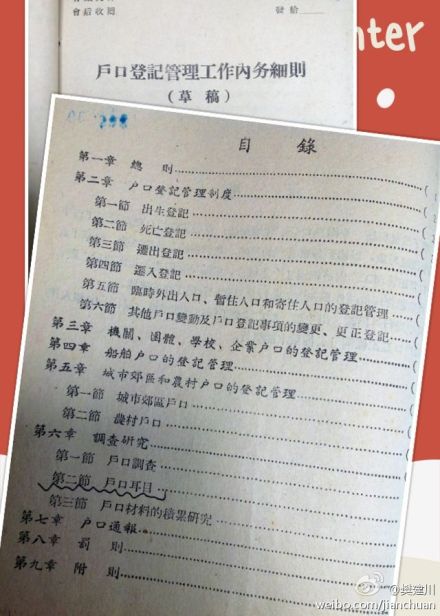 會后收廻 發給
nter
戶口登記管理工作內务細則
(草稿)
目錄
第一章 總則
第二章 戶口登記管理制度
第一節 出生登記
第二節 死亡登記
第三節 遷出登記
第四節 遷入登記
第五節 臨時外出人口、暫住人口和寄住人口的登記管理
第六節 其他戶口變動及戶口登記事項的變更、更正登記
第三章 機關、團體、學校、企業戶口的登記管理
第四章 船舶戶口的登記管理
第五章 城市郊區和農村戶口的登記管理
第一節 城市郊區戶口
第二節 農村戶口
第六章 調查研究
第一節 戶口調查
第二節 戶口耳目
第三節 戶口材料的積累研究
第七章 戶口通報
第八章 罰則
第九章 附則
@樊建川
weibo.com/jianchuan